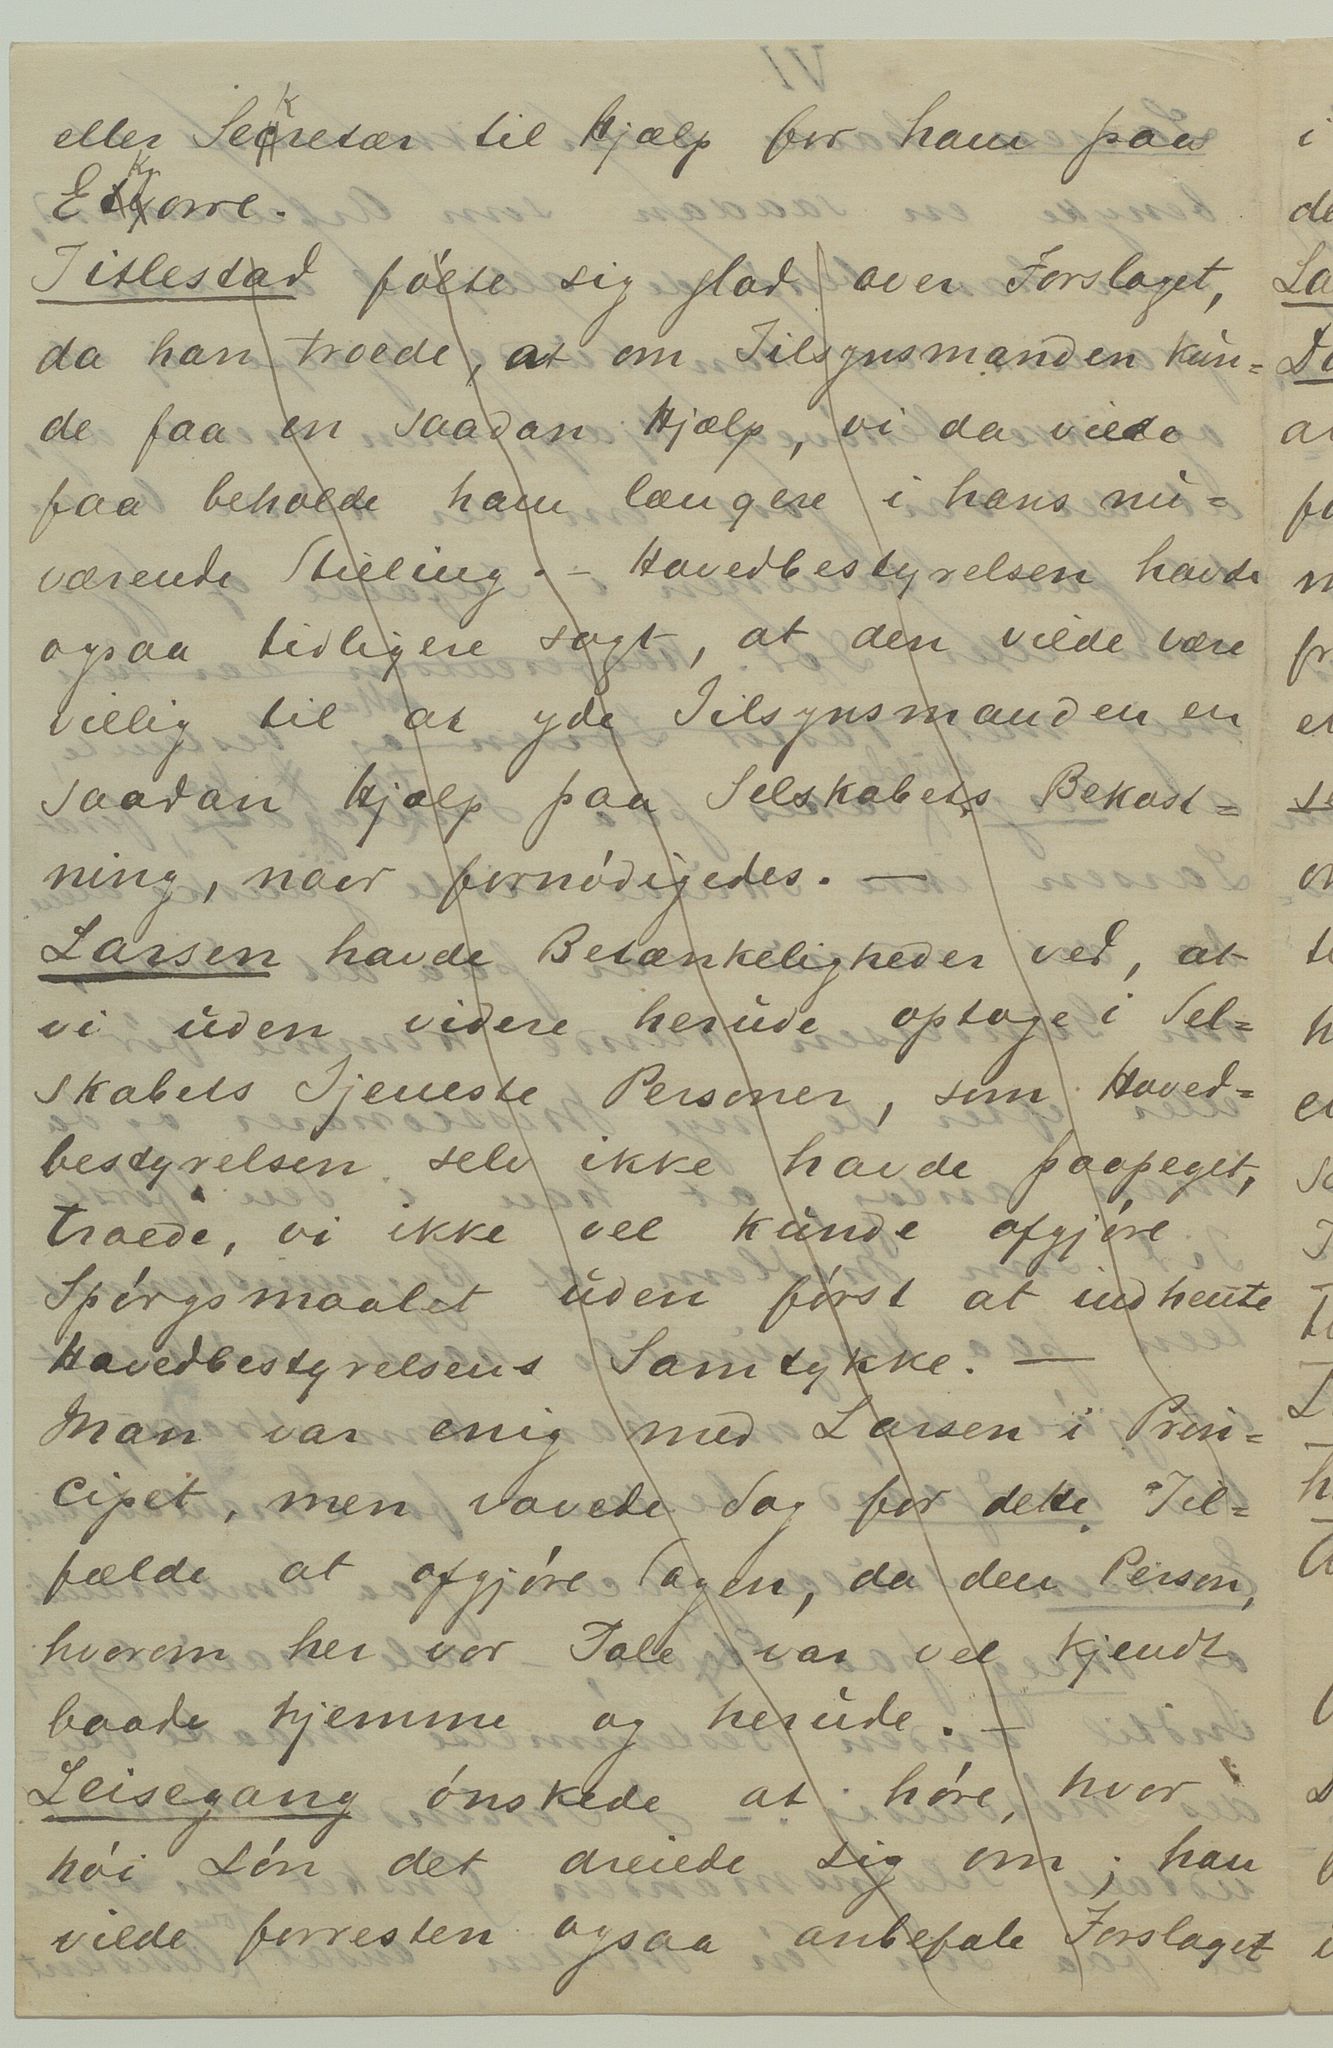 eller Sekretær til Hjælp for ham paa
Ekrorre.
Titlestad følte sig glad over Forslaget,
da han troede, at om Tilsynsmanden kun=
de faa en saadan Hjælp, vi da vilde
faa beholde ham længere i hans nu=
værende Stilling. – Hovedbestyrelsen havde
ogsaa tidligere sagt, at den vilde være
villig til at yde Tilsynsmanden en
saadan Hjælp paa Selskabets Bekost=
ning, naar fornødigedes. —
Larsen havde Betænkeligheder ved, at
vi uden videre herude optage i Sel=
skabets Tjeneste Personer, som Hoved=
bestyrelsen selv ikke havde paapeget,
troede, vi ikke vel kunde afgjøre
Spørgsmaalet uden først at indhente
Hovedbestyrelsens Samtykke. —
Man var enig med Larsen i Prin=
cipet, men vovede dog for dette Til=
fælde at afgjøre Sagen, da den Person,
hvorom her var Tale var vel kjendt
baade hjemme og herude. –
Leisegang ønskede at høre, hvor
høi Løn det dreiede sig om; han
vilde forresten ogsaa anbefale Forslaget